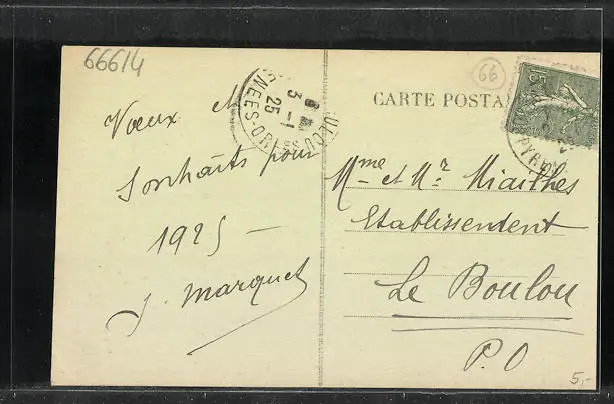 66614
66
CARTE POSTA
Vœux
Souhaits pour
1925 —
J. Marquet
3 -1
25
NEES-ORles
PYR
Mme et Mr Miailhes
Etablissement
Le Boulou
P.O
5,-